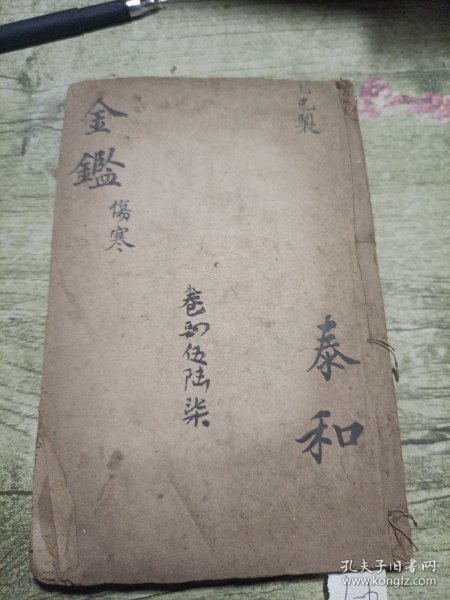 乙巳製
金鑑
傷寒
卷四伍陆柒
泰和
孔夫子旧书网
www.kongfz.com